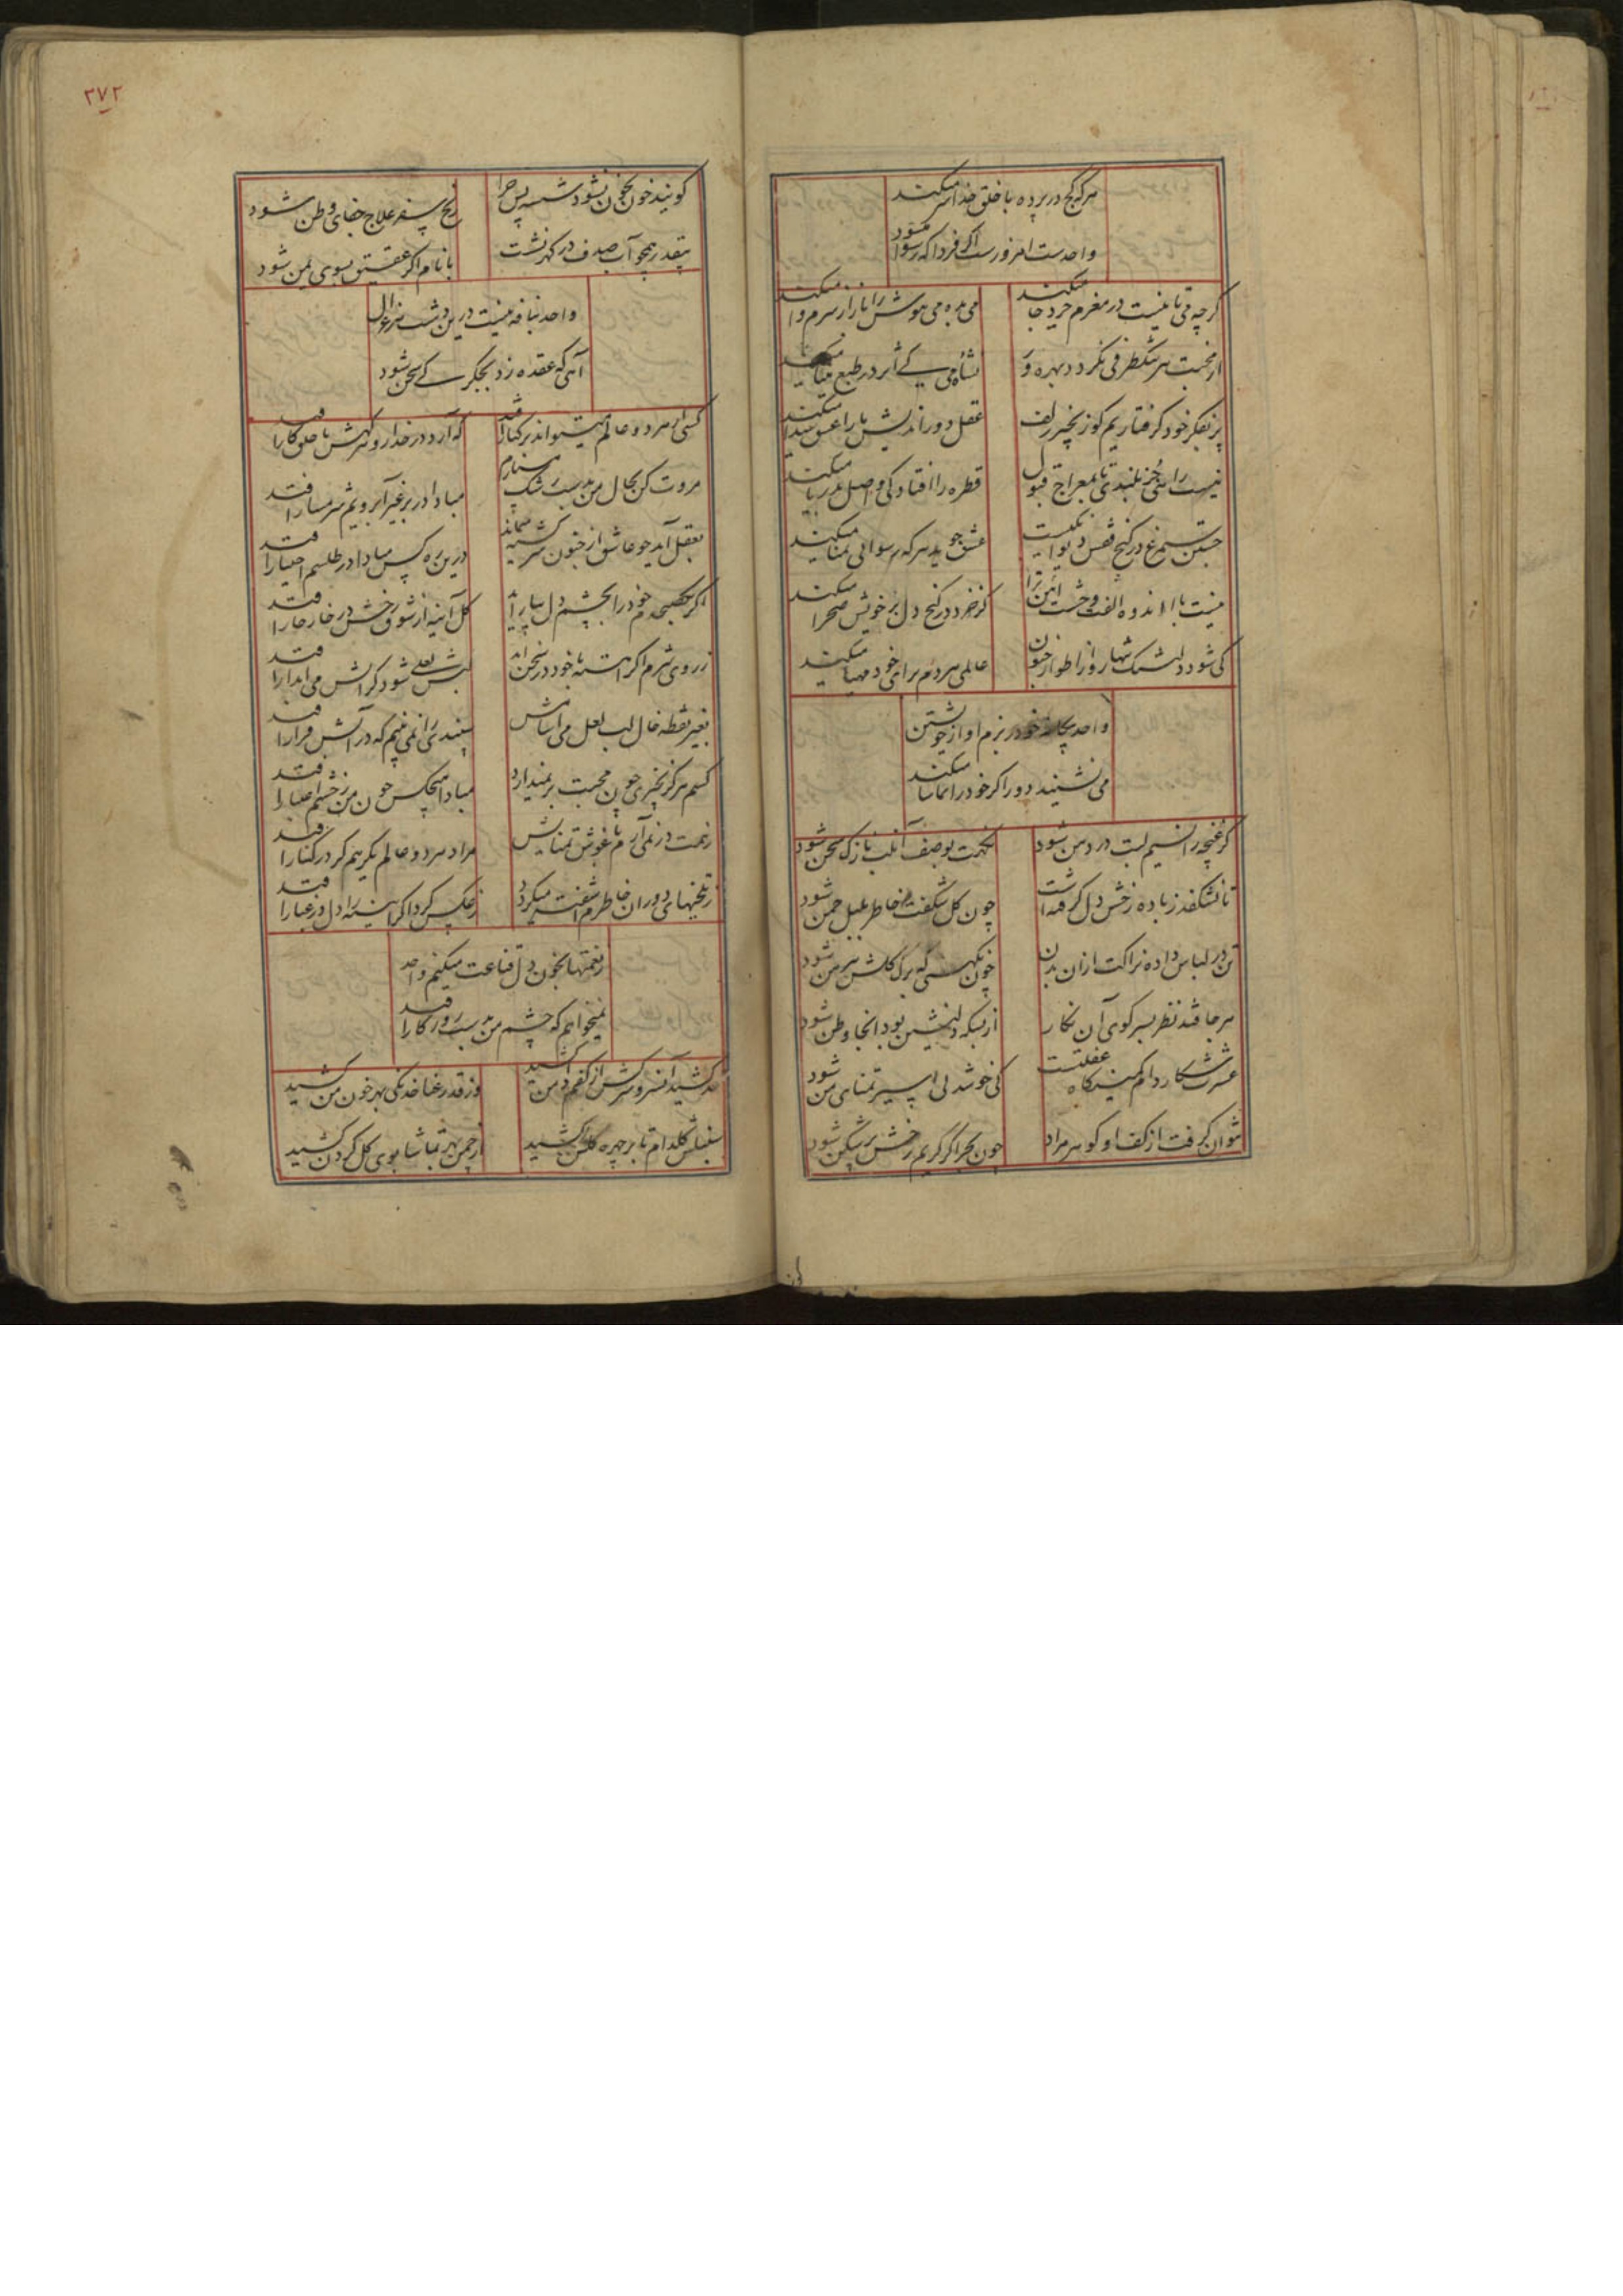 هر که کج در پرده با خلق خدا سر میکند
واحدست امروز رسوا اگر فردا که رسوا میشود
گرچه می تا نیست در مغزم خرد جا میکند
می بده می هوش را باز از سرم وا میکند
از محبت هر تنک ظرفی نکردد بهره ور
نشاه می کی اثر در طبع مینا میکند
پر بفکر خود گرفتاریم کو زنجیر زلف
عقل دور اندیش ما را عشق شیدا میکند
نیست راهی جز بلندی تا بمعراج قبول
قطره را افتادگی واصل بدریا میکند
جستن سیمرغ در کنج قفس دیوانگیست
عشق جوید هر که رسوائی تمنا میکند
نیست با ما اندوه الفت وحشت آئین ترا
کز خرد در کنج دل بر خویش صحرا میکند
کی شود دلتنک شبها روز از اطوار جنون
عالمی مردم برای خود مهیا میکند
واحد بیچاره خود در بزم او از خویشتن
می نشیند دور اگر خود را تماشا میکند
گر غنچه را نسیم لبت در دهن شود
نکهت بوصف آن لب نازک سخن شود
تا نشکفد ز باده رخش دل گرفته است
چون گل شکفت خاطر بلبل چمن شود
تن در لباس داده نزاکت از آن بدن
چون نکهتی که برک گلش پیرهن شود
هر جا فتد نظر بسر کوی آن نگار
از بسکه دلنشین بود آنجا وطن شود
عشرت شکار دام کمینگاه غفلتست
کی خوشدلی اسیر تمنای من شود
نتوان گرفت از کف او گوهر مراد
چون بحر اگر کریم رخش پرشکن شود
۲۷۲
گویند خون بخون نشود شسته پس چرا
رنج سفر علاج جفای وطن شود
بیقدر همچو آب صدف در گهر نشست
با نام اگر عقیق بسوی یمن شود
واحد نیافه نیست درین دشت هر غزال
آهی که عقده زد بجگر کی سخن شود
کسی از هر دو عالم میتواند بر کنار افتد
که آرد در خدا رو گر هش با خلق کار افتد
مروت کن بحال من بدست رشک مسپارم
مبادا در بر غیر آبرویم شرمسار افتد
بعقل آید چو عاشق از جنون سرگشته میماند
درین ره کس مبادا در طلسم اختیار افتد
گل آئینه از شوق رخش در خار خار افتد
ز روی شرم اگر آهسته با خود در سخن آید
لبش لعلی شود گر آتش می آبدار افتد
بغیر نقطه خال لب لعل می آسایش
سپندی را نمی بینم که در آتش قرار افتد
کسم هرگز بچیزی چون محبت بر نمیدارد
مبادا هیچکس چون من ز چشم اعتبار افتد
ز همت در نمی آرم بآغوش تمنایش
مراد هر دو عالم گر بهم در کنار افتد
ز تلخیهای دوران خاطرم آشفته میگردد
ز عکس گرد اگر آئینه را دل در غبار افتد
ز نعمتها بخون دل قناعت میکنم واحد
نمیخواهم که چشم من بدست روزگار افتد
کشید آن سرو سرکش از کفم دامن کشید
وز قد رعنا خدنگی بهر خون من کشید
سنبلش گلدام تا بر چهره گلشن کشید
از چمن بهر تماشا بوی گل گردن کشید